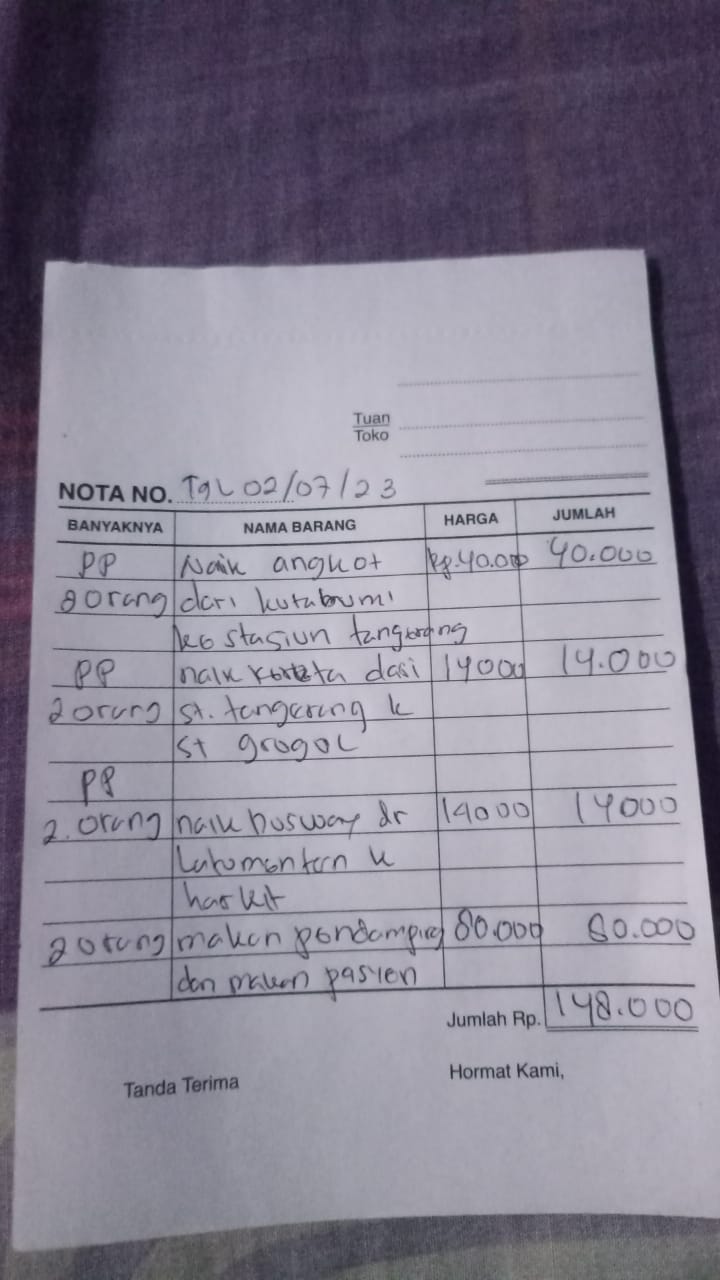 Tuan
Toko
NOTA NO. Tgl 02/07/23
BANYAKNYA NAMA BARANG HARGA JUMLAH
PP Naik angkot Rp.40.000 40.000
2 orang dari kutabumi
ke stasiun tangerang
PP naik kereta dari 14000 14.000
2 orang st. tangerang k
st grogol
PP
2. orang naik busway dr 14000 14000
Latumenten k
harkit
2 orang makan pendamping 80.000 80.000
dan makan pasien
Jumlah Rp. 148.000
Tanda Terima Hormat Kami,